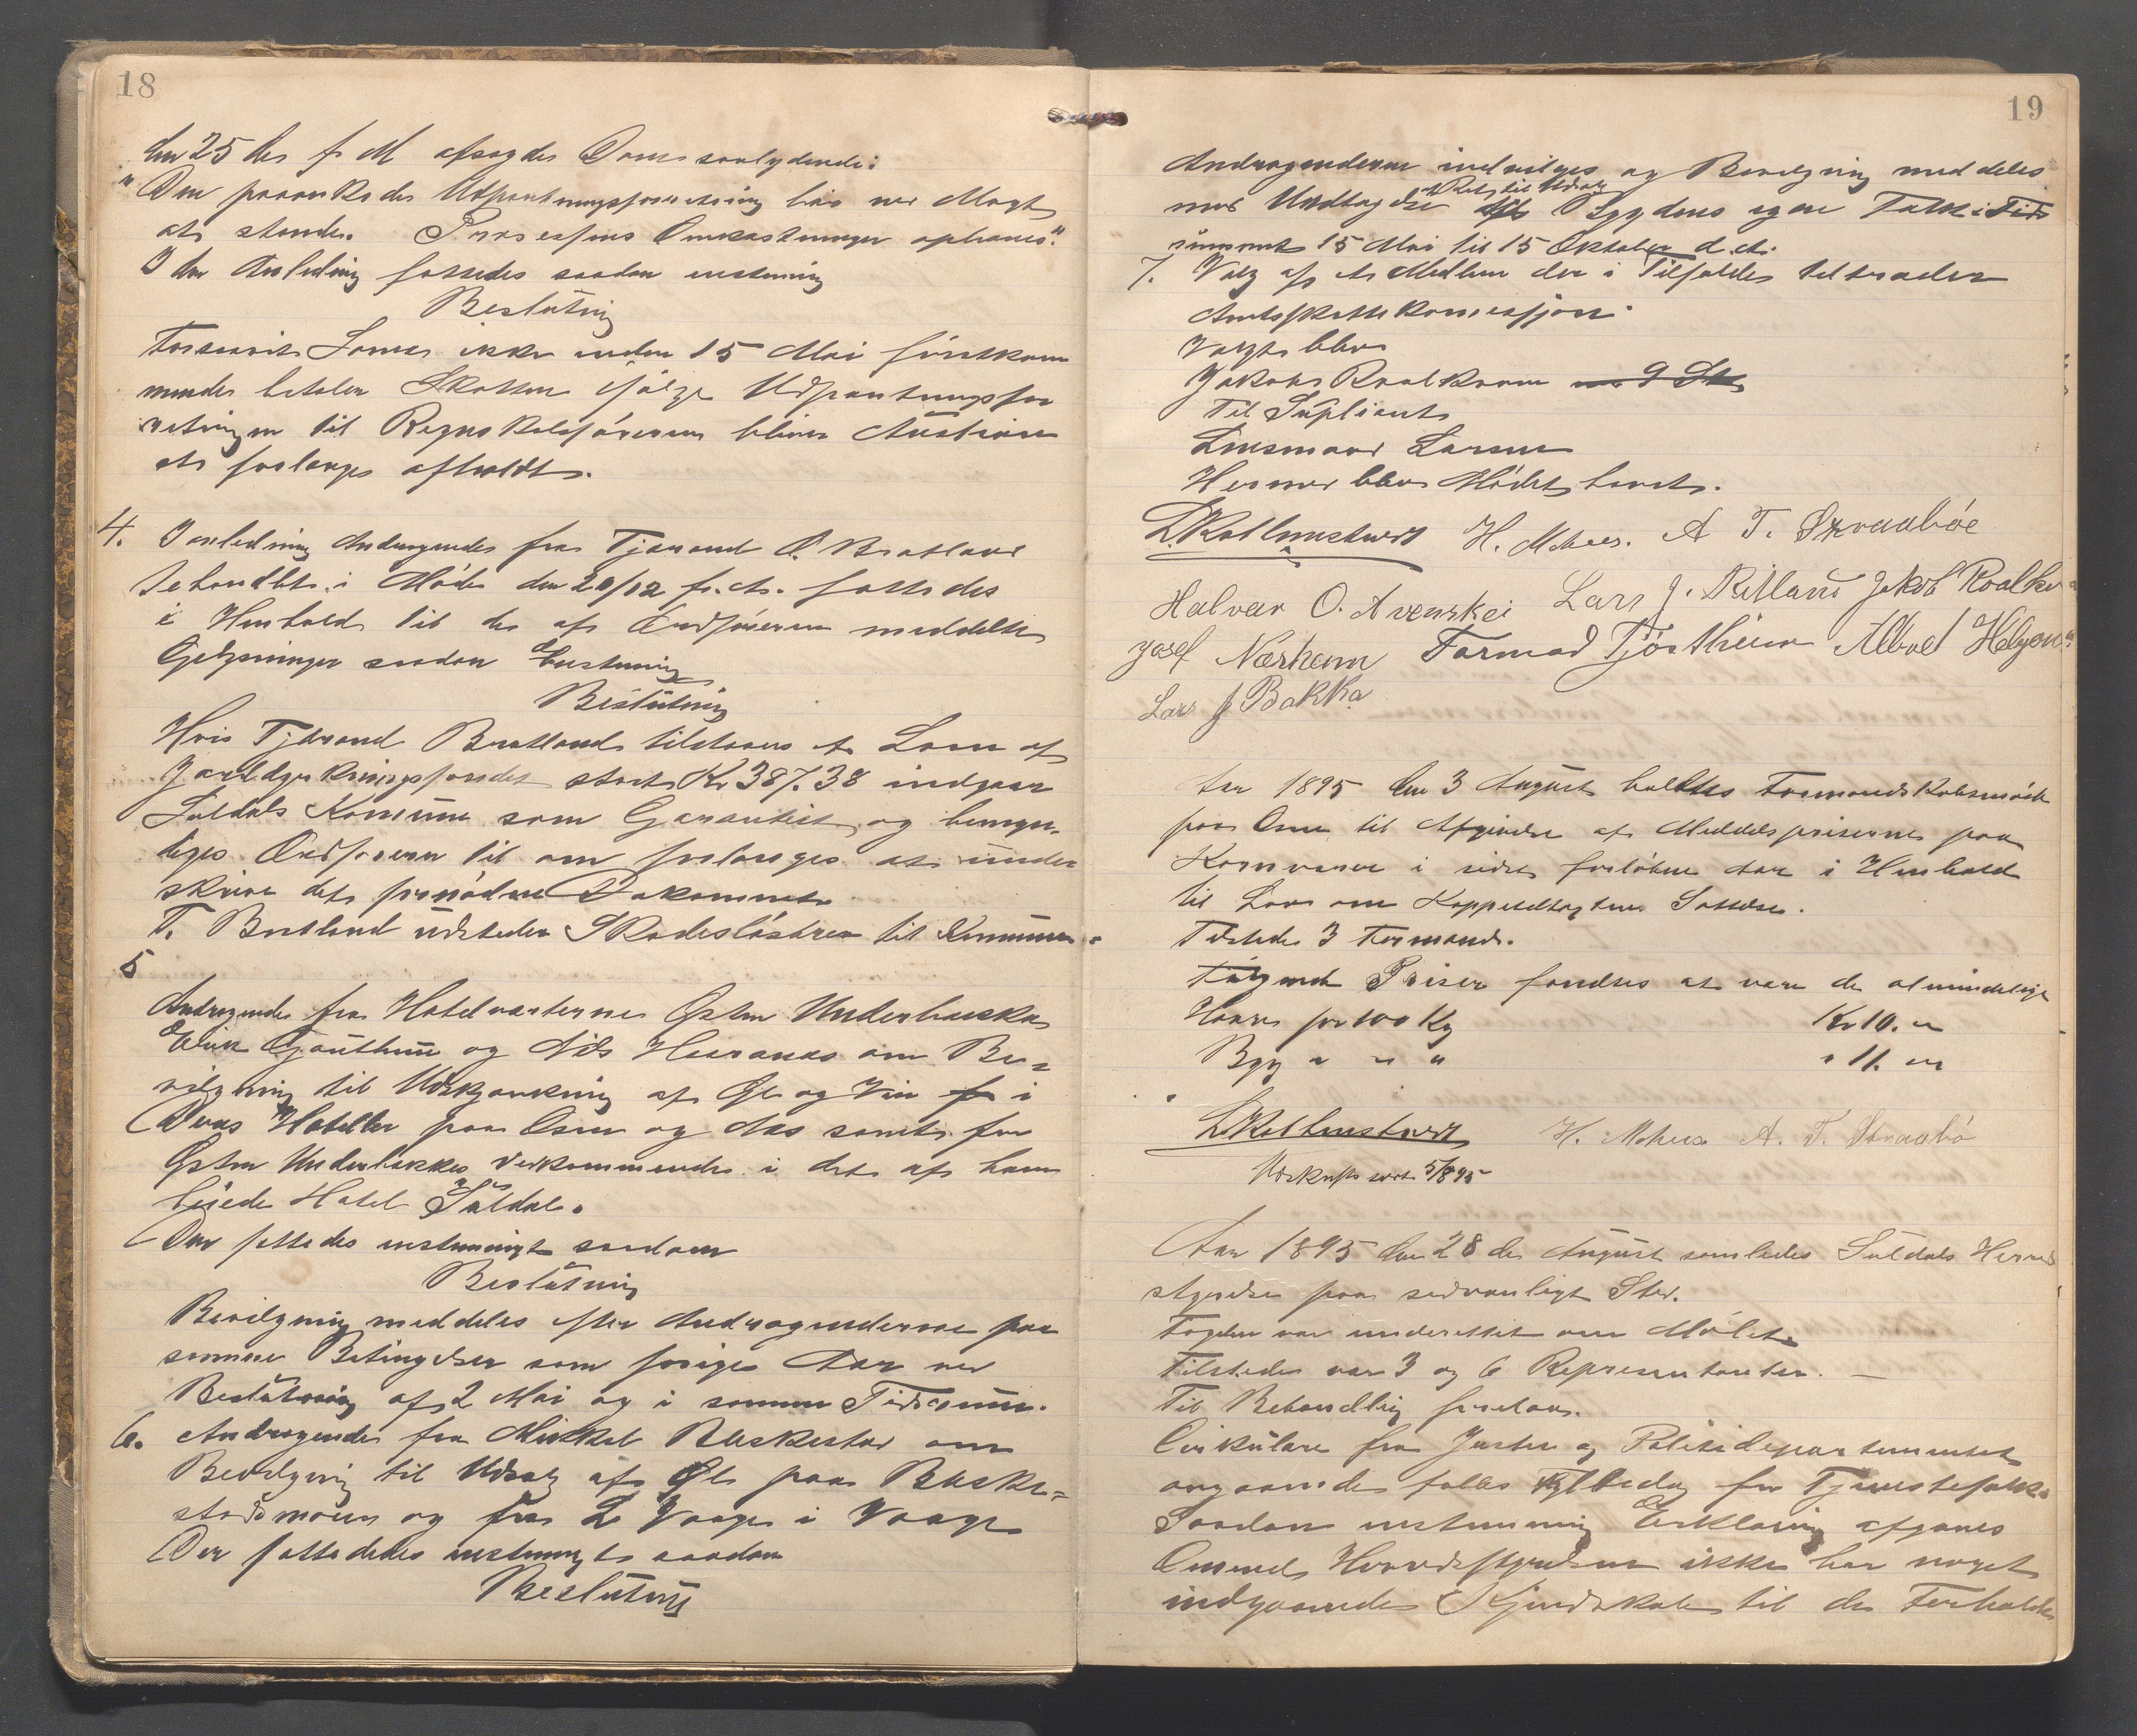 18
den 25 de f. M afsagdes Dom saalydende:
"Den paaankede Udpantningsforretning bør ved Magt
at stande. Processens Omkostninger ophæves."
I den Anledning fattedes saadan enstemmig
Beslutning
Forsaavidt Larsen ikke inden 15 Mai førstkom
mende betaler Skatten ifølge Udpantningsfor
retningen til Regnskabsføreren bliver Auktion
at forlange afholdt.
4. I anledning Andragende fra Tjerand O. Bratland
behandlet i Møde den 20/12 f. A. fattedes
i Henhold til de af Ordføreren meddelte
Oplysninger saadan Enstemmig
Beslutning
Hvis Tjerand Bratland tilstaaes et Laan af
Jorddyrkningsfondet stort Kr 387.38 indgaar
Suldals Komune som Garantist og bemyn-
diges Ordføreren til om forlanges at under
skrive det fornødne Dokument
T. Bratland udsteder Skadesløsbrev til Kommunen.
5
Andragende fra Hotelværterne Østen Underbakke
Eirik Gauthun og Nils Hearaas om Be-
vilgning til Udskjænkning af Øl og Vin i
Deres Hoteller paa Osen og Næs samt for
Østen Underbakkes Vedkommende i det af ham
leiede Hotel Suldal.
Der fattedes enstemmigt saadan
Beslutning
Bevilgning meddeles efter Andragenderne paa
samme Betingelser som forrige Aar ved
Beslutning af 2 Mai og i samme Tidsrum.
6. Andragende fra Mikkel Bleskestad om
Bevilgning til Udsalg af Øl paa Bleske-
stadmoen og fra L Vaage i Vaage
Der fattedes enstemmigt saadan
Beslutning
19
Andragenderne indvilges og Bevilgning meddeles
med Undtagelse Ret til Udsalg til Bygdens egne Folk i Tids
rummet 15 Mai til 15 Oktober d. A.
7. Valg af et Medlem der i Tilfælde tiltræder
Amtsskattekomissjon.
Valgt blev
Jakob Roalkvam
Til Supliant
Lensmand Larsen
Hermed blev Mødet hævet.
L Kolbenstvedt H. Mehus. A T. Straabøe
Halvar O. Arenskei Lars J. Ritland Jakob Roalkva
Josef Nærheim Tormod Tjøstheim Albret Helgen
Lars J Bakka
Aar 1895 den 3 August holdtes Formandskabsmøde
paa Osen til Afgivelse af Middelspriserne paa
Kornvarer i sidst forløbne Aar i Henhold
til Lov om Koppeldtagtens Sættelse.
Tilstede 3 Formænd.
Følgende Priser fandtes at være de almindelige
Havre pr 100 Kg Kr 10. "
Byg " " " " 11. "
L Kolbenstvedt H. Mehus A. T. Straabø
Udskrift sendt 5/8 95
Aar 1895 den 28 de August samledes Suldals Herreds
styrelse paa sedvanligt Sted.
Fogden var underettet om Mødet
Tilstede var 3 og 6 Representanter. —
Til Behandling foretoges.
Cirkulære fra Justis og Politidepartementet
angaaende fælles Flyttedag for Tjenestefolk.
Saadan enstemmig Erklæring afgaves
Omend Herredsstyrelsen ikke har noget
indgaaende Kjendskab til de Forholde